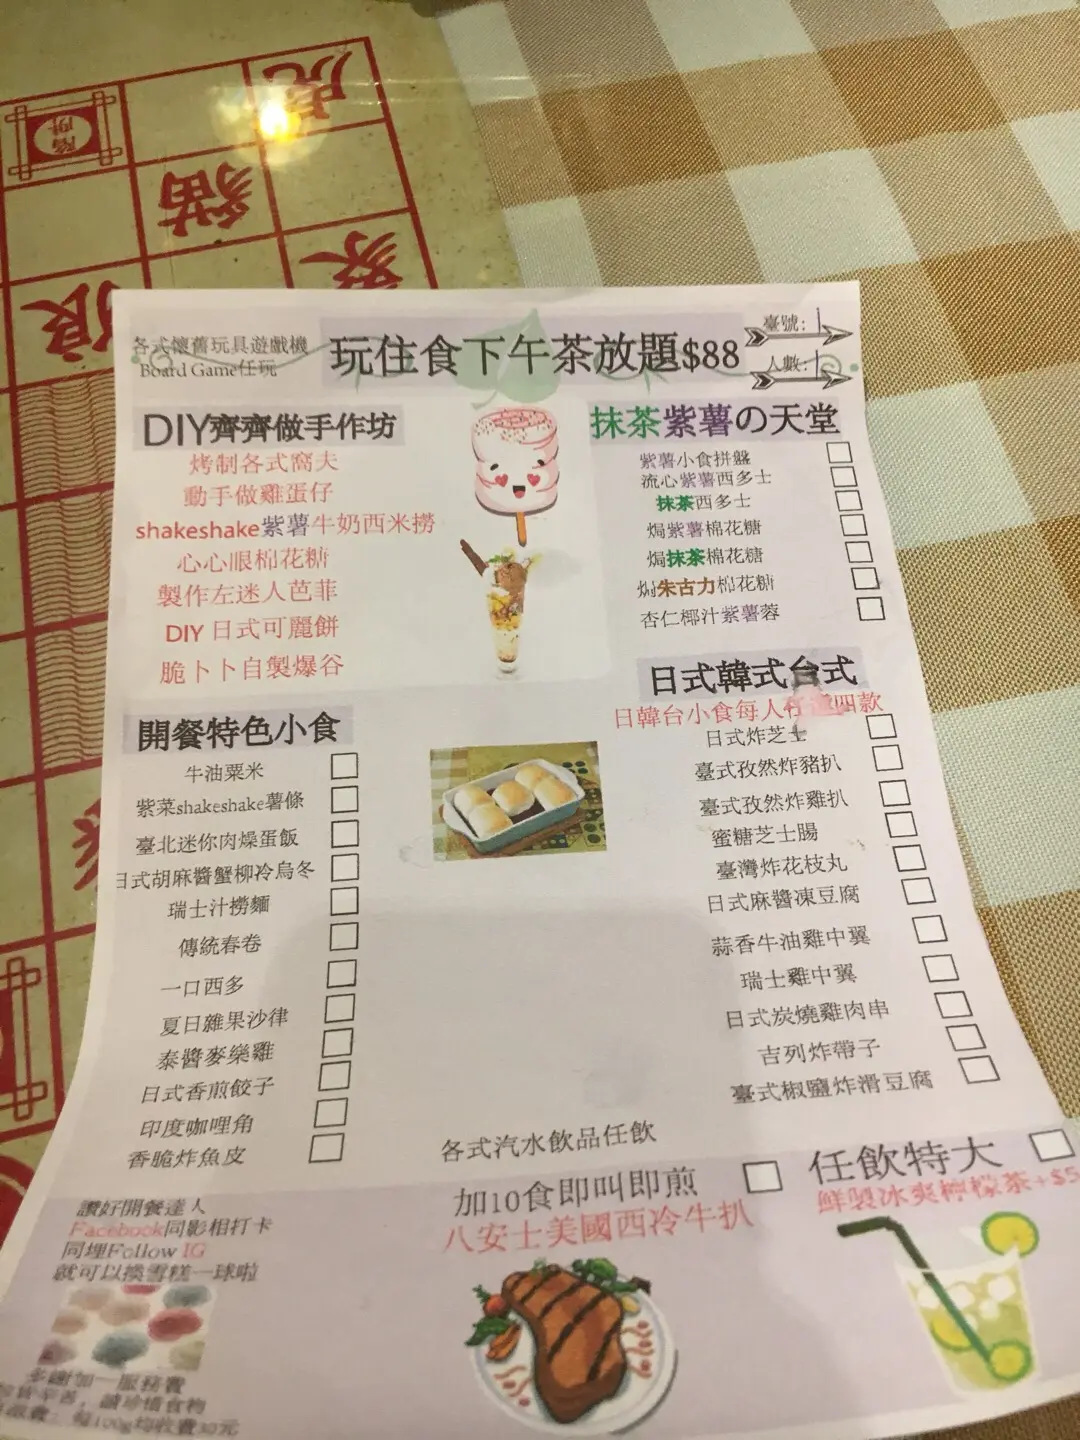 虎
陷阱
貓
象
狼
各式懷舊玩具遊戲機
Board Game任玩
玩住食下午茶放題$88
臺號:
人數:
DIY齊齊做手作坊
烤制各式窩夫
動手做雞蛋仔
shakeshake紫薯牛奶西米撈
心心眼棉花糖
製作左迷人芭菲
DIY 日式可麗餅
脆卜卜自製爆谷
抹茶紫薯の天堂
紫薯小食拼盤
流心紫薯西多士
抹茶西多士
焗紫薯棉花糖
焗抹茶棉花糖
焗朱古力棉花糖
杏仁椰汁紫薯蓉
開餐特色小食
牛油粟米
紫菜shakeshake薯條
臺北迷你肉燥蛋飯
日式胡麻醬蟹柳冷烏冬
瑞士汁撈麵
傳統春卷
一口西多
夏日雜果沙律
泰醬麥樂雞
日式香煎餃子
印度咖哩角
香脆炸魚皮
日式韓式台式
日韓台小食每人任選四款
日式炸芝士
臺式孜然炸豬扒
臺式孜然炸雞扒
蜜糖芝士腸
臺灣炸花枝丸
日式麻醬凍豆腐
蒜香牛油雞中翼
瑞士雞中翼
日式炭燒雞肉串
吉列炸帶子
臺式椒鹽炸滑豆腐
各式汽水飲品任飲
加10食即叫即煎
八安士美國西冷牛扒
任飲特大
鮮製冰爽檸檬茶+$5
讚好開餐達人
Facebook同影相打卡
同埋Follow IG
就可以換雪糕一球啦
多謝加一服務費
請珍惜食物
每100g均收費30元